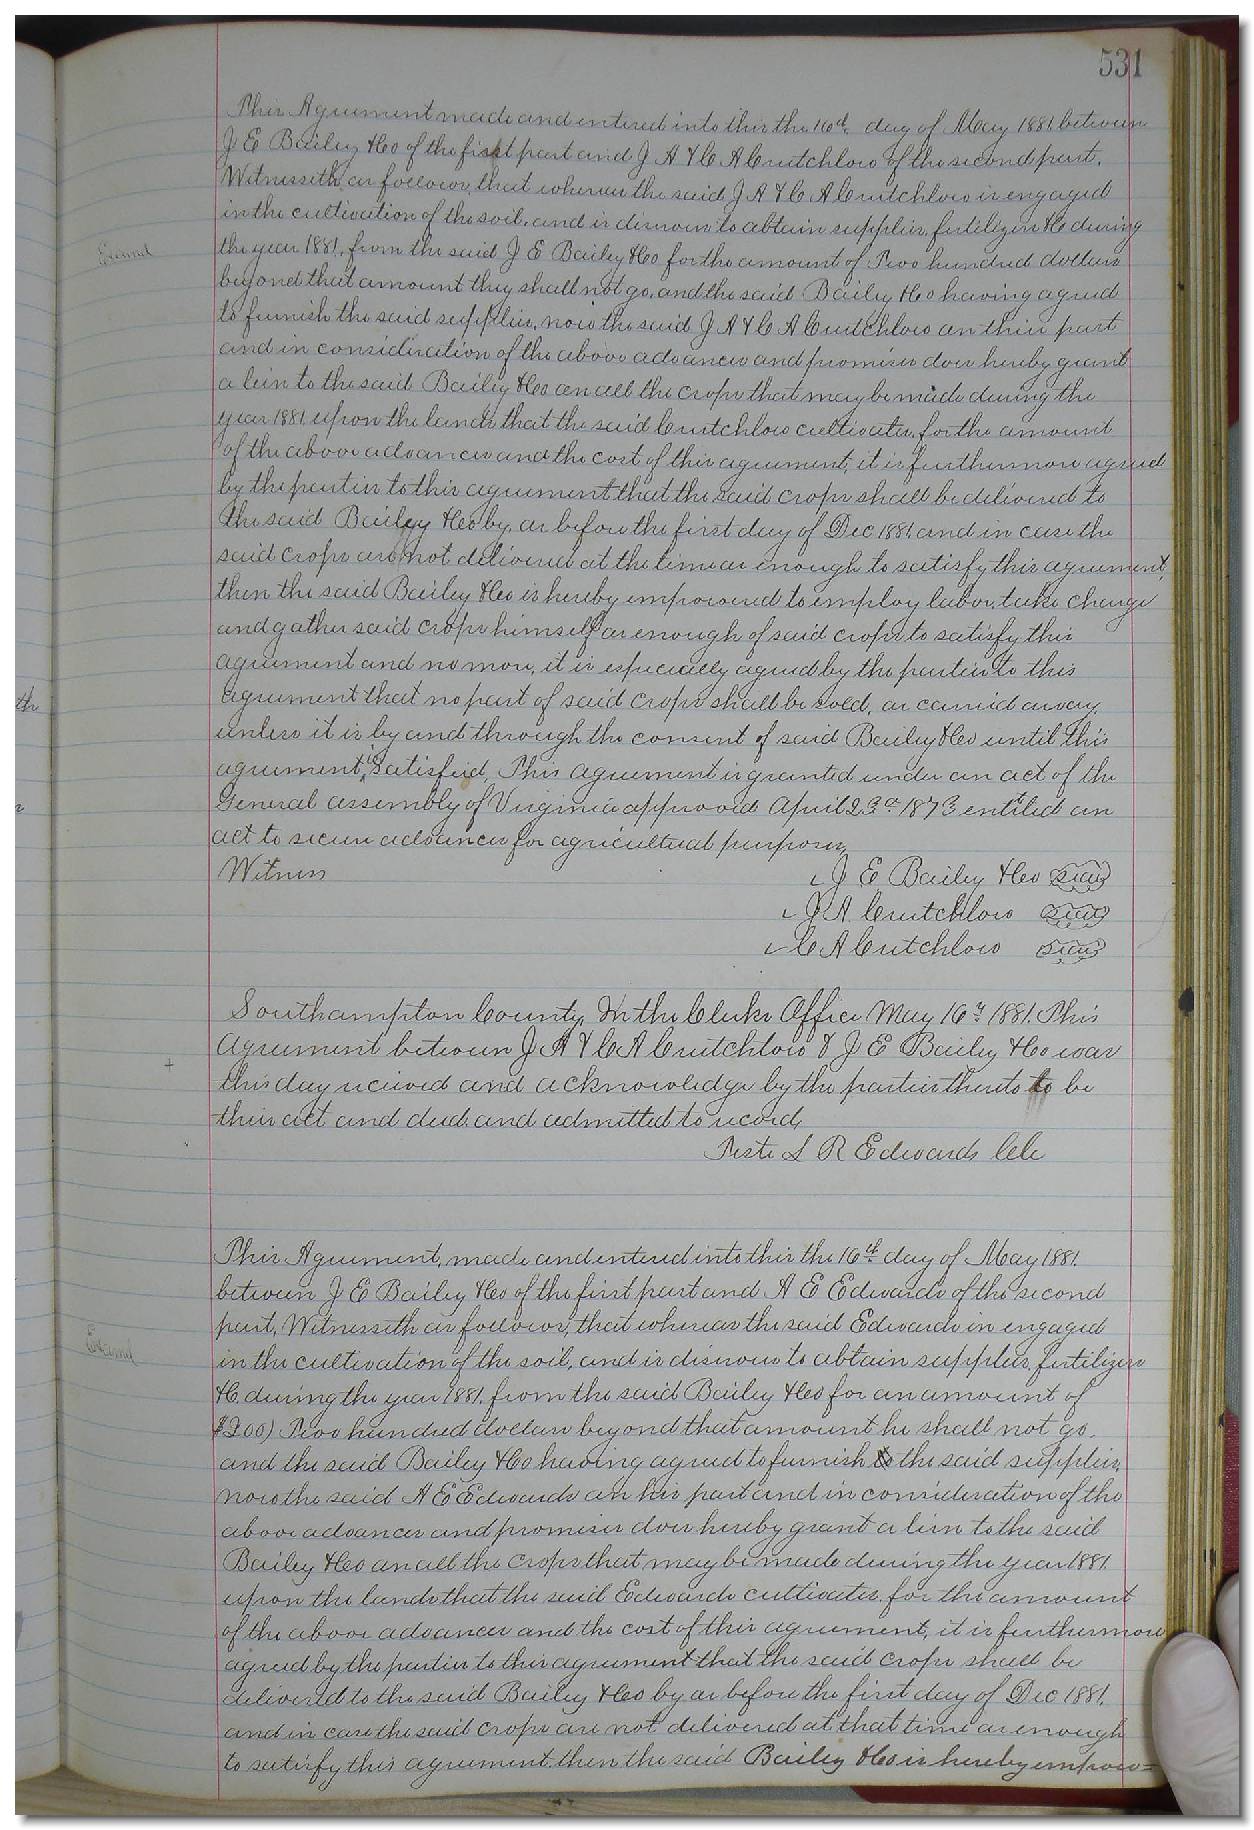 531
This Agreement made and entered into this the 16th day of May 1881 between
J E Bailey & Co of the first part and J A & C A Crutchlow of the second part.
Witnesseth, as follows, that whereas the said J A & C A Crutchlow is engaged
in the cultivation of the soil, and is desirous to obtain supplies, fertilizers &c during
the year 1881, from the said J E Bailey & Co for the amount of Two hundred dollars
beyond that amount they shall not go, and the said Bailey & Co having agreed
to furnish the said supplies, now the said J A & C A Crutchlow on their part
and in consideration of the above advances and promises does hereby grant
a lein to the said Bailey & Co on all the crops that may be made during the
year 1881 upon the lands that the said Crutchlow cultivates, for the amount
of the above advances and the cost of this agreement, it is furthermore agreed
by the parties to this agreement that the said crops shall be delivered to
the said Bailey & Co by, or before the first day of Dec 1881, and in case the
said crops are not delivered at the time or enough to satisfy this agreement,
then the said Bailey & Co is hereby empowered to employ labor, take charge
and gather said crops himself or enough of said crops to satisfy this
agreement and no more, it is especially agreed by the parties to this
agreement that no part of said crops shall be sold, or carried away
unless it is by and through the consent of said Bailey & Co until this
agreement is satisfied, This agreement is granted under an act of the
General assembly of Virginia approved April 23rd 1873 entitled an
act to secure advances for agricultural purposes,
Witness J E Bailey & Co Seal
J A Crutchlow Seal
C A Crutchlow Seal
Southampton County, In the Clerks Office May 16th 1881. This
Agreement between J A & C A Crutchlow & J E Bailey & Co was
this day received and acknowledge by the parties thereto to be
their act and deed, and admitted to record,
Teste L R Edwards Clk
This Agreement, made and entered into this the 16th day of May 1881.
between J E Bailey & Co of the first part and A E Edwards of the second
part, Witnesseth as follows, that whereas the said Edwards in engaged
in the cultivation of the soil, and is desirous to obtain supplies, fertilizers
&C. during the year 1881, from the said Bailey & Co for an amount of
$200) Two hundred dollars beyond that amount he shall not go.
and the said Bailey & Co having agreed to furnish the said supplies,
now the said A E Edwards on his part and in consideration of the
above advances and promises does hereby grant a lien to the said
Bailey & Co on all the crops that may be made during the year 1881.
upon the lands that the said Edwards cultivates, for the amount
of the above advances and the cost of this agreement, it is furthermore
agreed by the parties to this agreement that the said crops shall be
delivered to the said Bailey & Co by or before the first day of Dec 1881,
and in case the said crops are not delivered at that time or enough
to satisfy this agreement, then the said Bailey & Co is hereby empow=